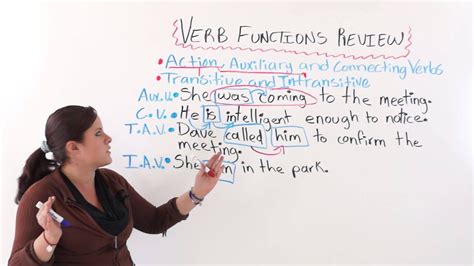 VERB FUNCTIONS REVIEW
• Action, Auxiliary and Connecting Verbs
• Transitive and Intransitive
Aux.V. • She was coming to the meeting.
C.V. • He is intelligent enough to notice.
T.A.V. • Dave called him to confirm the
meeting.
I.A.V. • She in the park.